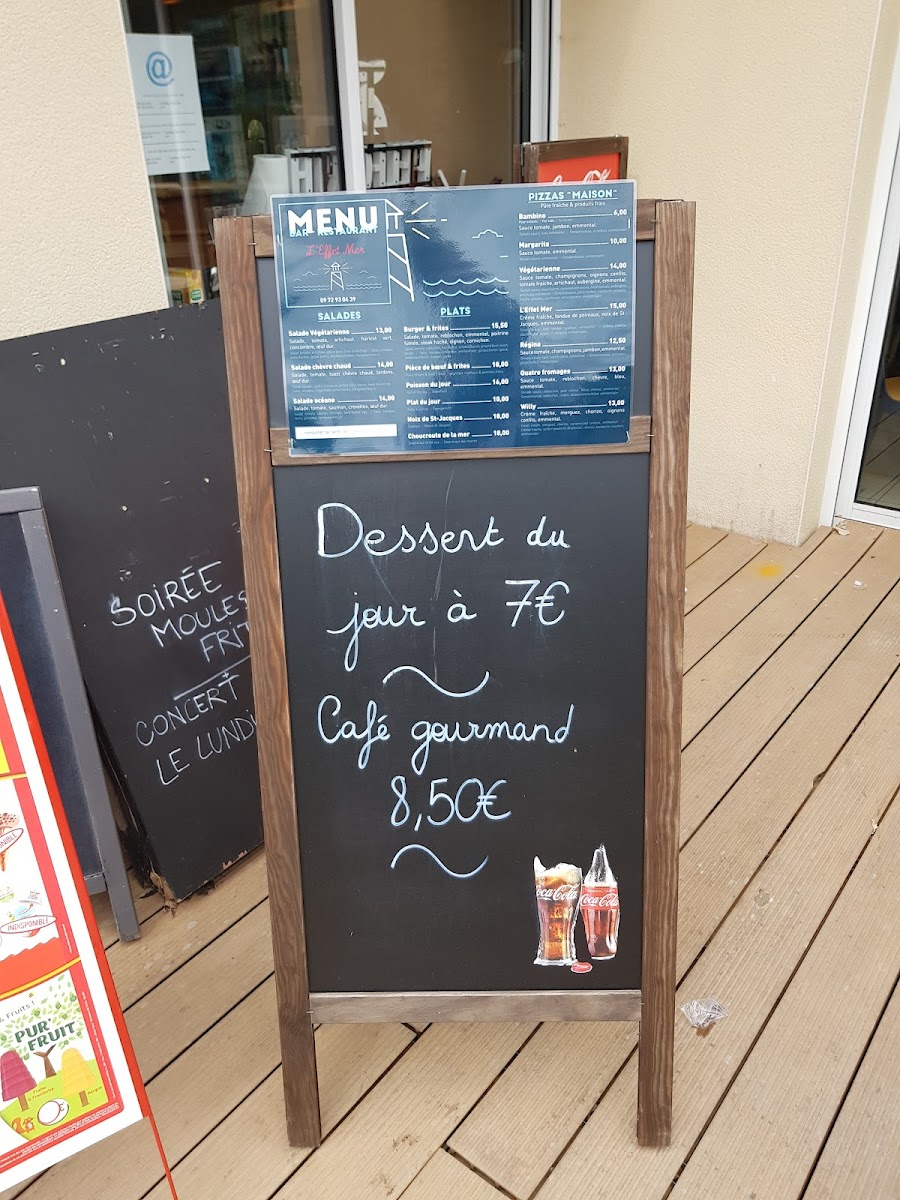 @
MENU
BAR RESTAURANT
L'Effet Mer
09 72 93 04 39
SALADES
Salade Végétarienne 13,00
Salade, tomate, artichaut, haricot vert, concombre, œuf dur.
Salade chèvre chaud 14,00
Salade, tomate, toast chèvre chaud, lardons, œuf dur.
Salade océane 14,00
Salade, tomate, saumon, crevettes, œuf dur
PLATS
Burger & frites 15,50
Salade, tomate, reblochon, emmental, poitrine fumée, steak haché, oignon, cornichon.
Pièce de bœuf & frites 18,00
Poisson du jour 14,00
Plat du jour 10,00
Noix de St-Jacques 18,00
Choucroute de la mer 18,00
PIZZAS "MAISON"
Pâte fraîche & produits frais.
Bambino 6,00
Sauce tomate, jambon, emmental.
Margarita 10,00
Sauce tomate, emmental.
Végétarienne 14,00
Sauce tomate, champignons, oignons confits, tomate fraîche, artichaut, aubergine, emmental.
L'Effet Mer 15,00
Crème fraîche, fondue de poireaux, noix de St-Jacques, emmental.
Régina 12,50
Sauce tomate, champignons, jambon, emmental.
Quatre fromages 13,00
Sauce tomate, reblochon, chèvre, bleu, emmental.
Willy 13,00
Crème fraîche, merguez, chorizo, oignons confits, emmental.
Dessert du
jour à 7€
Café gourmand
8,50€
Coca-Cola
Coca-Cola
SOIRÉE
MOULES
FRIT
+
CONCERT
LE LUNDI
INDISPONIBLE
& Fruits !
PUR'
FRUIT